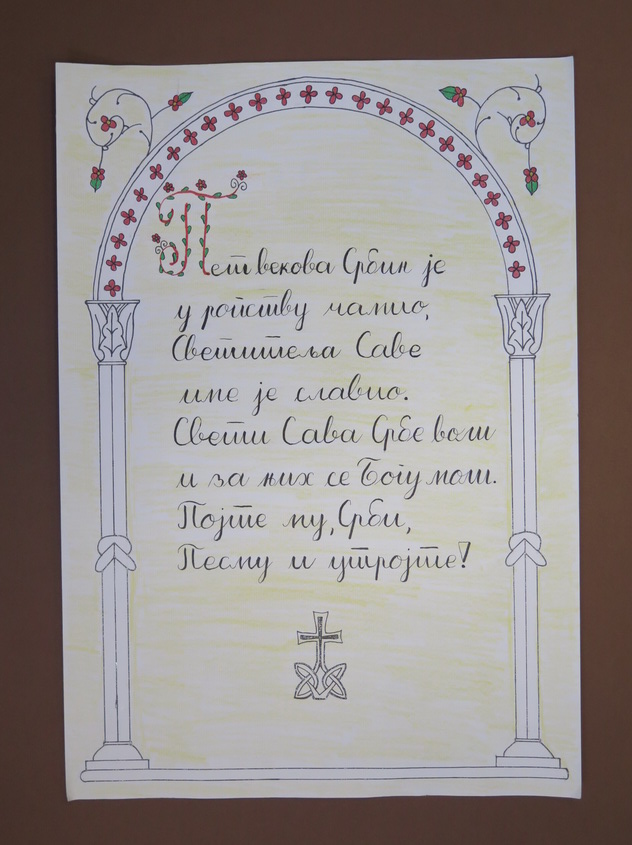 Пет векова Србин је
у ропству чамио,
Светитеља Саве
име је славио.
Свети Сава Србе воли
и за њих се Богу моли.
Појте му, Срби,
Песму и утројте!